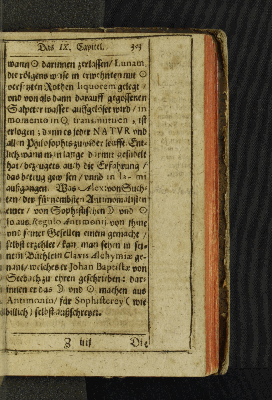 Das IX. Capitel. 353
wann ☉ darinnen zerlassen/ Lunam,
die folgens weise in erwehnten mit ☉
versetzten Rothen liquorem gelegt/
und von als dann darauff gegossenen
Salpeter wasser auffgelöset wird/ in
momento in ☉ transmutiren, ist
erlogen; dann es jeder NATUR und
allen Philosophis zuwider lauffe. Ent-
lich wann man lange darmit gesudelt
hat/ bezeugets auch die Erfahrung/
das betrug gewesen/ und in
außgangen. Was Alex: von Such-
ten/ der fürnembste Antimonialisten
einer/ von Sophistischen ☽ und ☉
so aus Regulo Antimonii von ihme
und seiner Gesellen einem gemacht/
selbst erzehlet/ kan man sehen in sei-
nem Büchlein Clavis Alchymiæ ge-
nant/ welches er Johan Baptistæ von
Seebach zu ehren geschrieben: dar-
innen er das ☽ und ☉ machen aus
Antimonio/ für Sophisterey (wie
billich) selbst außschreyet.
Z iiij Die